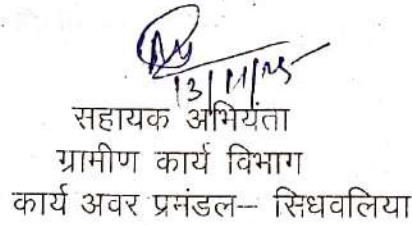 13/11/25
सहायक अभियंता
ग्रामीण कार्य विभाग
कार्य अवर प्रमंडल-- सिधवलिया